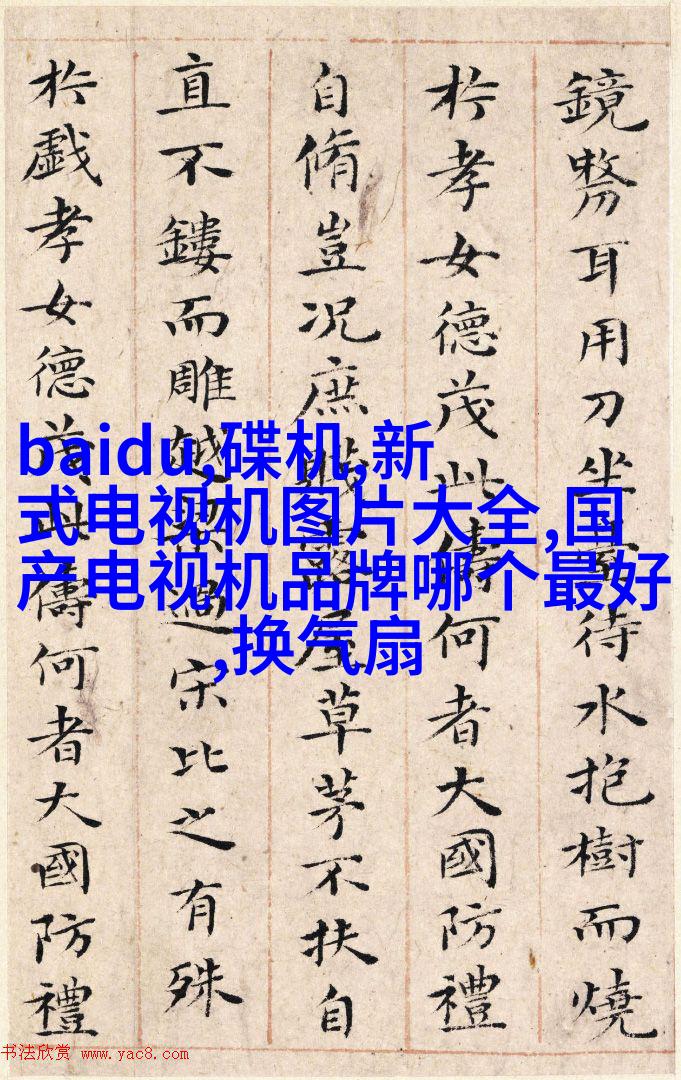 鏡剺耳用刀坐待水抱樹而燒
於孝女德茂此儔何者大國防禮
自脩豈况庶賤露屋草茅不扶自
直不鏤而雕越梁過宋比之有殊
於戲孝女德茂此儔何者大國防禮
baidu,碟机,新
式电视机图片大全,国
产电视机品牌哪个最好
,换气扇
书法欣赏 www.yac8.com